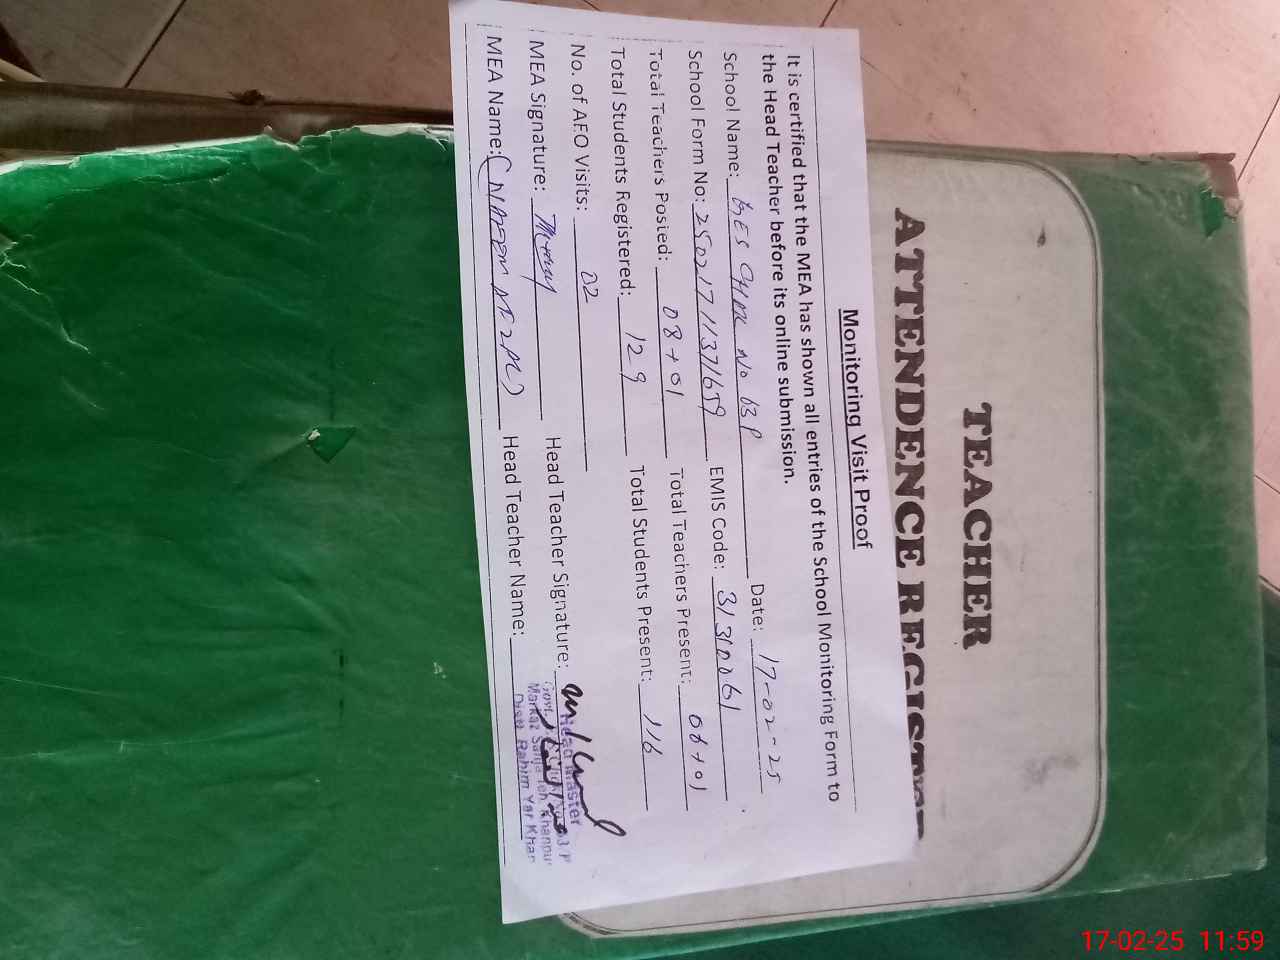 TEACHER
ATTENDENCE REGISTER
Monitoring Visit Proof
It is certified that the MEA has shown all entries of the School Monitoring Form to
the Head Teacher before its online submission.
School Name: GES CHAK NO 63P Date: 17-02-25
School Form No: 25021711371659 EMIS Code: 31310061
Total Teachers Posted: 08+01 Total Teachers Present: 08+01
Total Students Registered: 129 Total Students Present: 116
No. of AEO Visits: 02
MEA Signature: Head Teacher Signature:
MEA Name: Head Teacher Name:
Head Master
Markaz Sanja Teh Khanpur
Distt Rahim Yar Khan
17-02-25 11:59